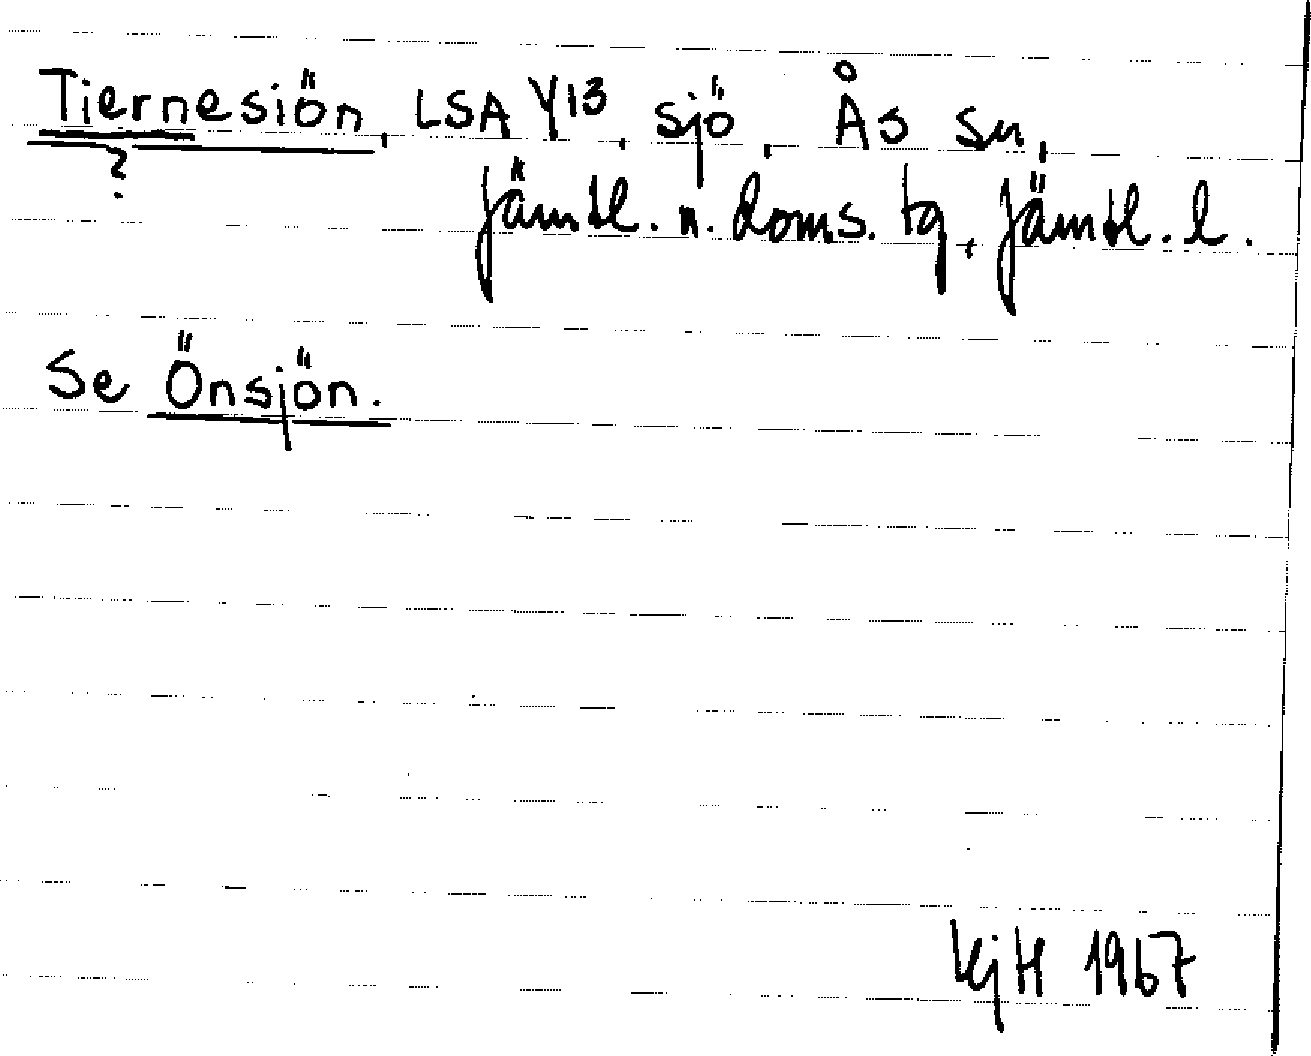 Tiernesiön, LSA Y13, sjö, Ås sn,
?
Jämtl. n. doms. tg, Jämtl. l.
Se Önsjön.
KjH 1967